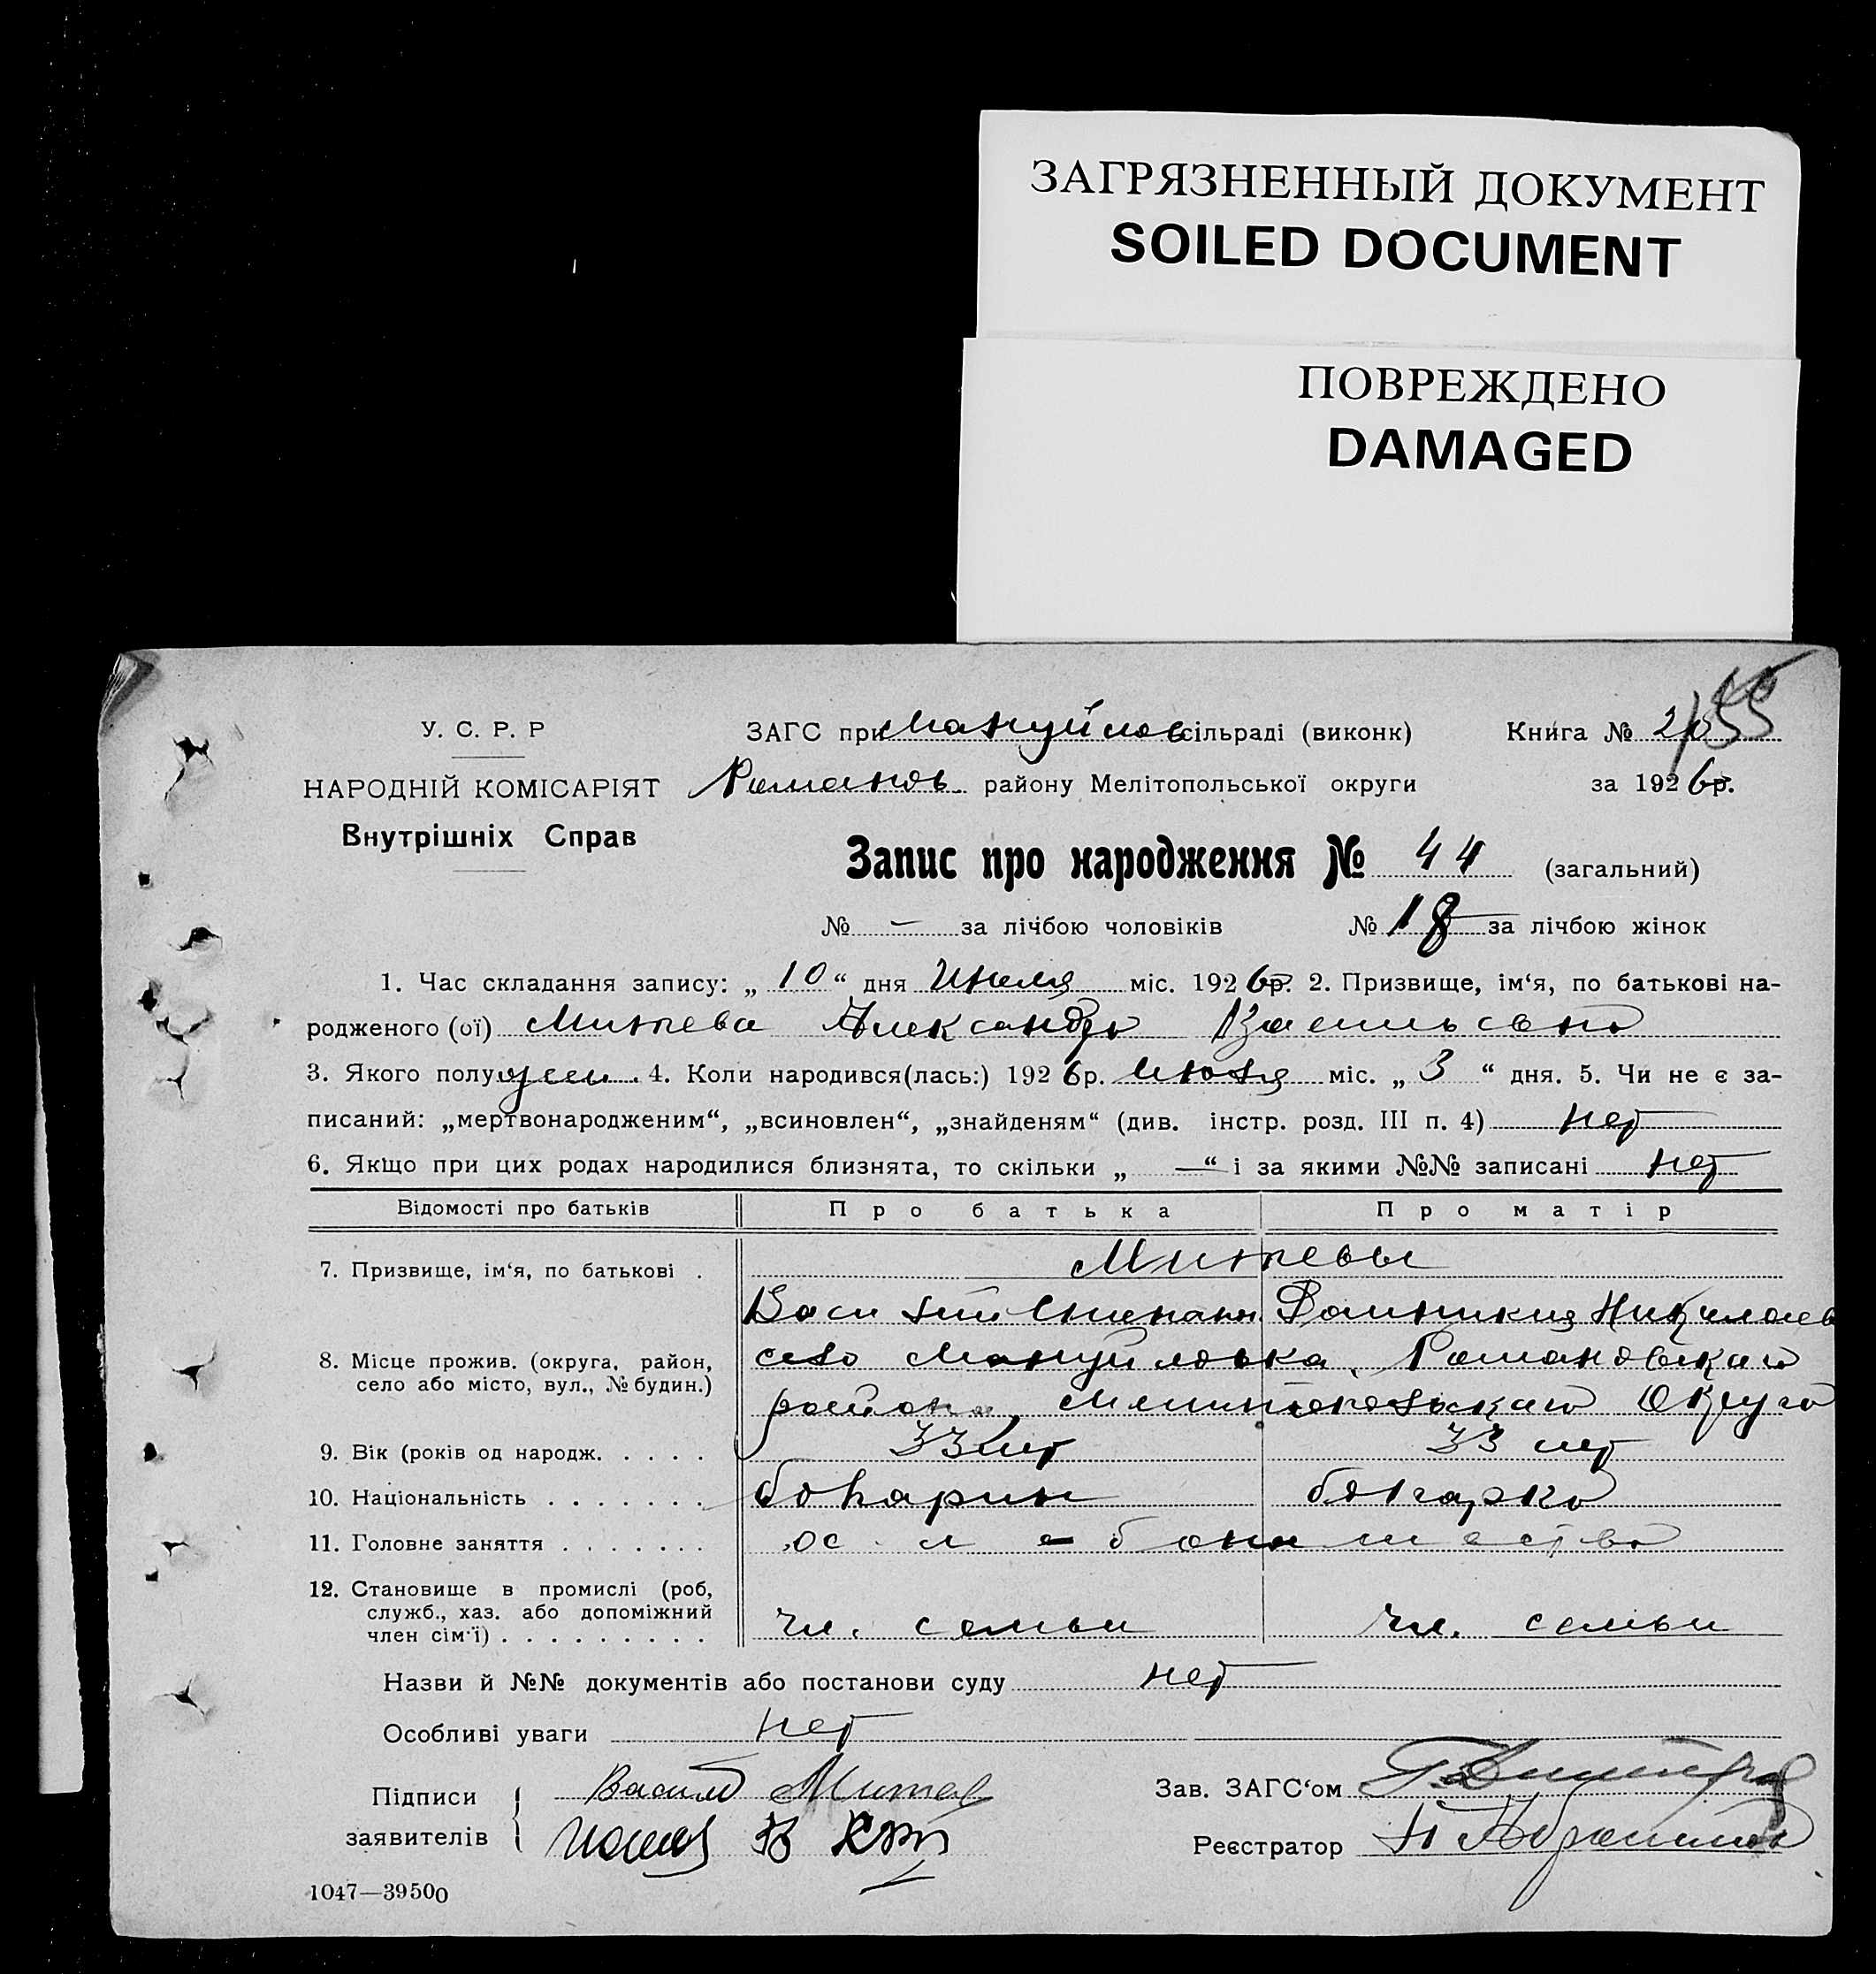 ЗАГРЯЗНЕННЫЙ ДОКУМЕНТ
SOILED DOCUMENT
ПОВРЕЖДЕНО
DAMAGED
У. С. Р. Р
НАРОДНІЙ КОМІСАРІЯТ
Внутрішніх Справ
ЗАГС при Мануйлов сільраді (виконк)
Романов. району Мелітопольської округи
Книга № 2
155
за 1926р.
Запис про народження № 44 (загальний)
№ — за лічбою чоловіків № 18 за лічбою жінок
1. Час складання запису: „ 10 “ дня Июля міс. 1926р. 2. Призвище, ім‘я, по батькові на-
родженого (ої) Митева Александра Васильевна
3. Якого полу жен. 4. Коли народився(лась:) 1926р. Июня міс. „ 3 “ дня. 5. Чи не є за-
писаний: „мертвонародженим“, „всиновлен“, „знайденям“ (див. інстр. розд. III п. 4) нет
6. Якщо при цих родах народилися близнята, то скільки „ — “ і за якими №№ записані нет
Відомості про батьків Про батька Про матір
7. Призвище, ім‘я, по батькові . Митевы
Василий Степан. Домникия Николаев
8. Місце прожив. (округа, район, село Мануйловка, Романовского
село або місто, вул., № будин.) района, Мелитопольского Округа
9. Вік (років од народж. . . . . 33 лет 33 лет
10. Національність . . . . . . . болгарин болгарка
11. Головне заняття . . . . . . .
12. Становище в промислі (роб,
служб., хаз. або допоміжний
член сім‘ї) . . . . . . . . . чл. семьи чл. семьи
Назви й №№ документів або постанови суду нет
Особливі уваги нет
Підписи Васил Митев
заявителів
Зав. ЗАГС‘ом
Реєстратор
1047—39500